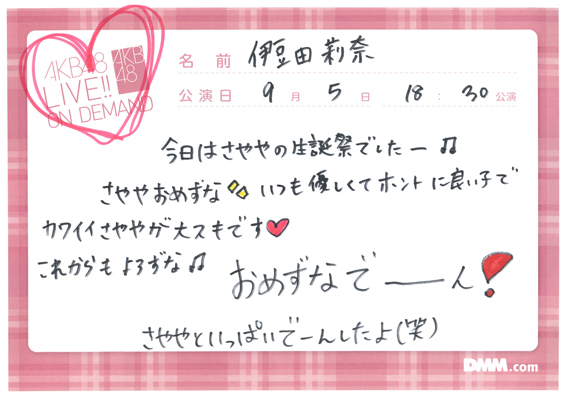 AKB48
LIVE!!
ON DEMAND
AKB
48
名前 伊豆田莉奈
公演日 9月5日 18:30公演
今日はさややの生誕祭でしたー♫
さややおめずな いつも優しくてホントに良い子で
カワイイさややが大スキです♥
これからもよろずな♫
おめずなでーーん!
さややといっぱいでーんしたよ(笑)
DMM.com